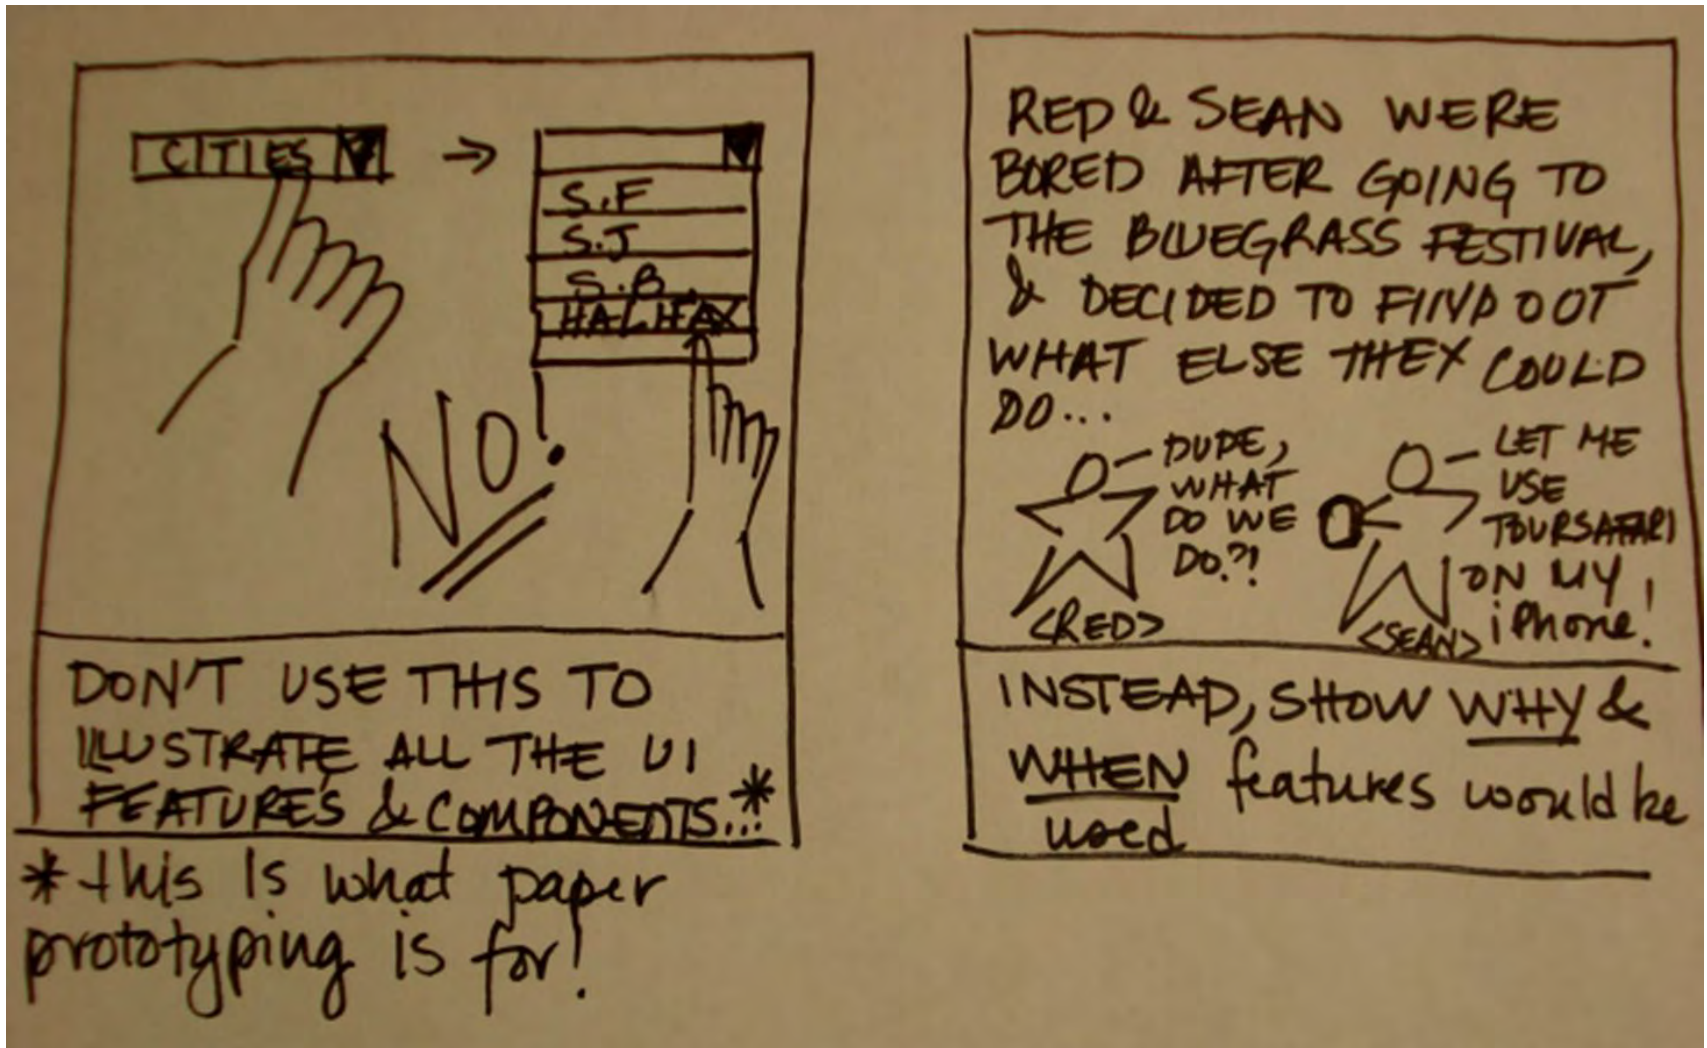 CITIES
S.F
S.J
S.B.
HALIFAX
NO!
DON'T USE THIS TO
ILLUSTRATE ALL THE UI
FEATURES & COMPONENTS...*
*this is what paper
prototyping is for!
RED & SEAN WERE
BORED AFTER GOING TO
THE BLUEGRASS FESTIVAL,
& DECIDED TO FIND OUT
WHAT ELSE THEY COULD
DO...
DUDE,
WHAT
DO WE
DO?!
<RED>
LET ME
USE
TOURSAFARI
ON MY
iPhone!
<SEAN>
INSTEAD, SHOW WHY &
WHEN features would be
used